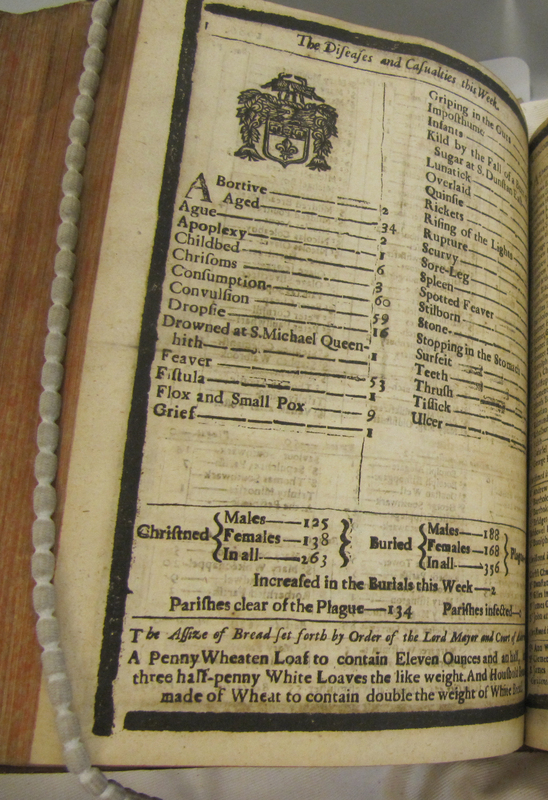 The Diſeaſes and Caſualties this Week.
ABortive 2
Aged 34
Ague 2
Apoplexy 1
Childbed 6
Chriſoms 3
Conſumption 60
Convulſion 59
Dropſie 16
Drowned at S. Michael Queen-
hith 1
Feaver 53
Fiſtula 1
Flox and Small Pox 9
Grief 1
Griping in the Guts
Impoſthume
Infants
Kild by the Fall of a
Sugar at S. Dunſtan
Lunatick
Overlaid
Quinſie
Rickets
Riſing of the Lights
Rupture
Scurvy
Sore-Leg
Spleen
Spotted Feaver
Stilborn
Stone
Stopping in the Stomach
Surfeit
Teeth
Thruſh
Tiſſick
Ulcer
Chriſtned Males 125 Females 138 In all 263
Buried Males 188 Females 168 In all 356
Increaſed in the Burials this Week 2
Pariſhes clear of the Plague 134 Pariſhes infected
The Aſſize of Bread ſet forth by Order of the Lord Mayor and Court of
A Penny Wheaten Loaf to contain Eleven Ounces and an half,
three half-penny White Loaves the like weight. And Houſhold
made of Wheat to contain double the weight of White